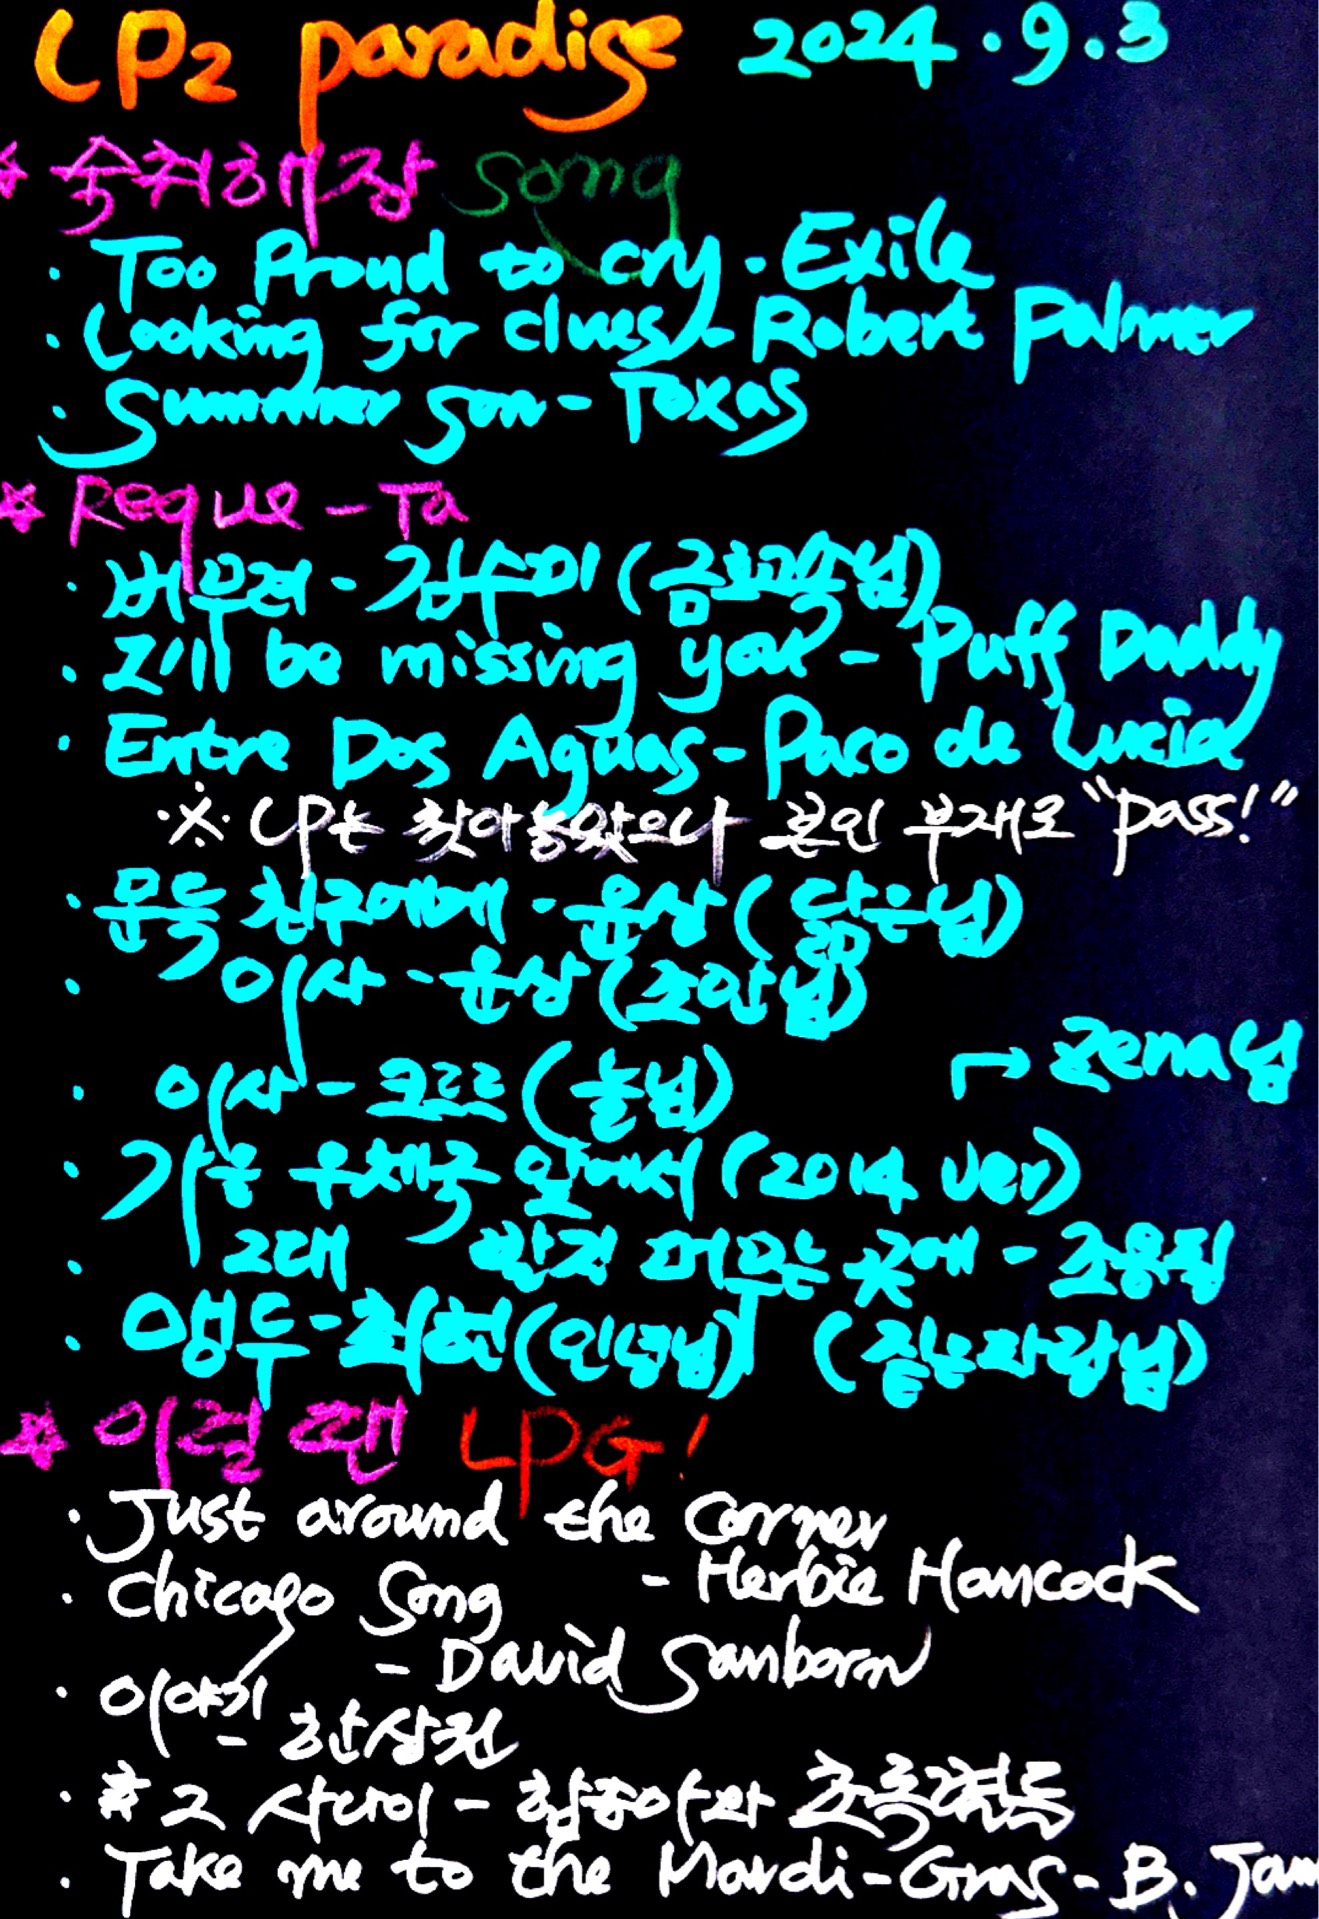 LP2 paradise 2024.9.3
☆ 숙취해장 song
· Too Proud to cry - Exile
· Looking for clues - Robert Palmer
· Summer son - Texas
☆ Reque-Ta
· 버무려 - 김수미 (님)
· I'll be missing you - Puff Daddy
· Entre Dos Aguas - Paco de Lucia
※ LP는 찾아놓았으나 본인 부재로 "pass!"
· 문득 친구에게 - 윤상 (닮은님)
· 이사 - 윤상 (조안님)
· 이사 - (놀님)
→ Zena님
· 가을 우체국 앞에서 (2014 ver)
· 그대 발길 머무는 곳에 - 조용필
· 앵두 - 최헌 (인성님) (님)
☆ 이럴 땐 LPG!
· Just around the corner
- Herbie Hancock
· Chicago Song
- David Sanborn
· 이야기
- 한상원
· ☆ 그 사나이 - 함중아와
· Take me to the Mardi-Gras - B. Jam